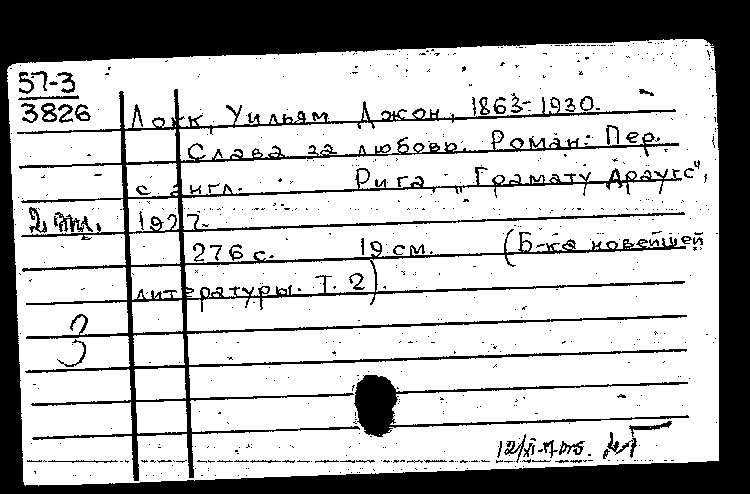 57-3
3826
Локк, Уильям Джон, 1863-1930.
Слава за любовь. Роман: Пер.
с англ. Рига, "Грамату Драугс",
1927.
276 с. 19 см. (Б-ка новейшей
литературы. Т. 2).
3